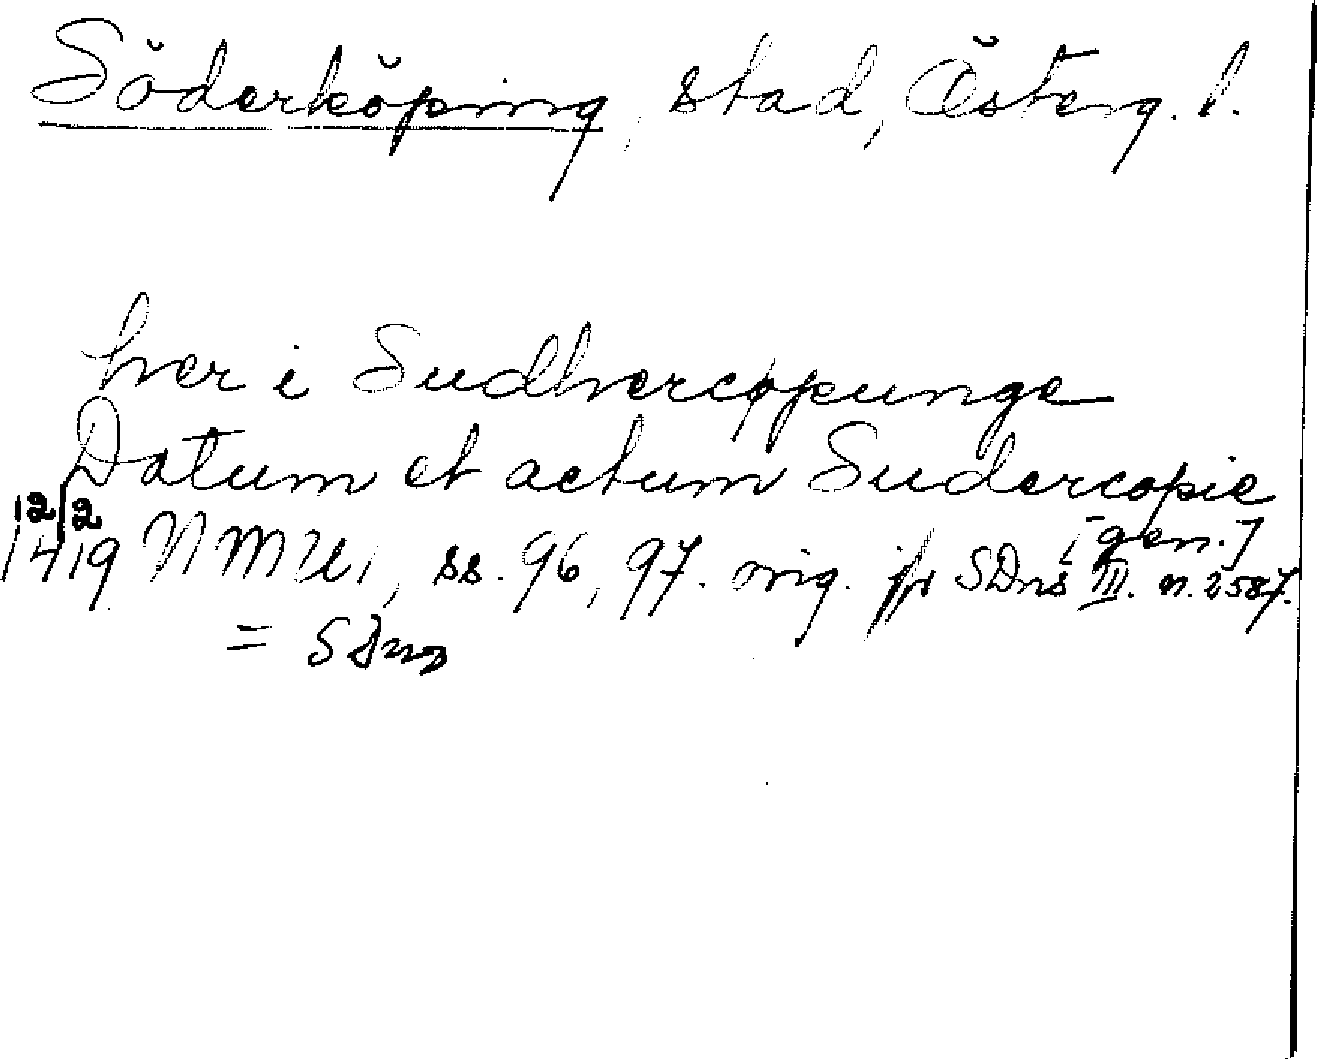 Söderköping, stad, Österg. l.
her i Sudhercøpunge
Datum et actum Sudercopie
[gen.]
12/2 1419 NMU 1, ss. 96, 97. orig. jfr SDns III. n. 2587.
= SDns